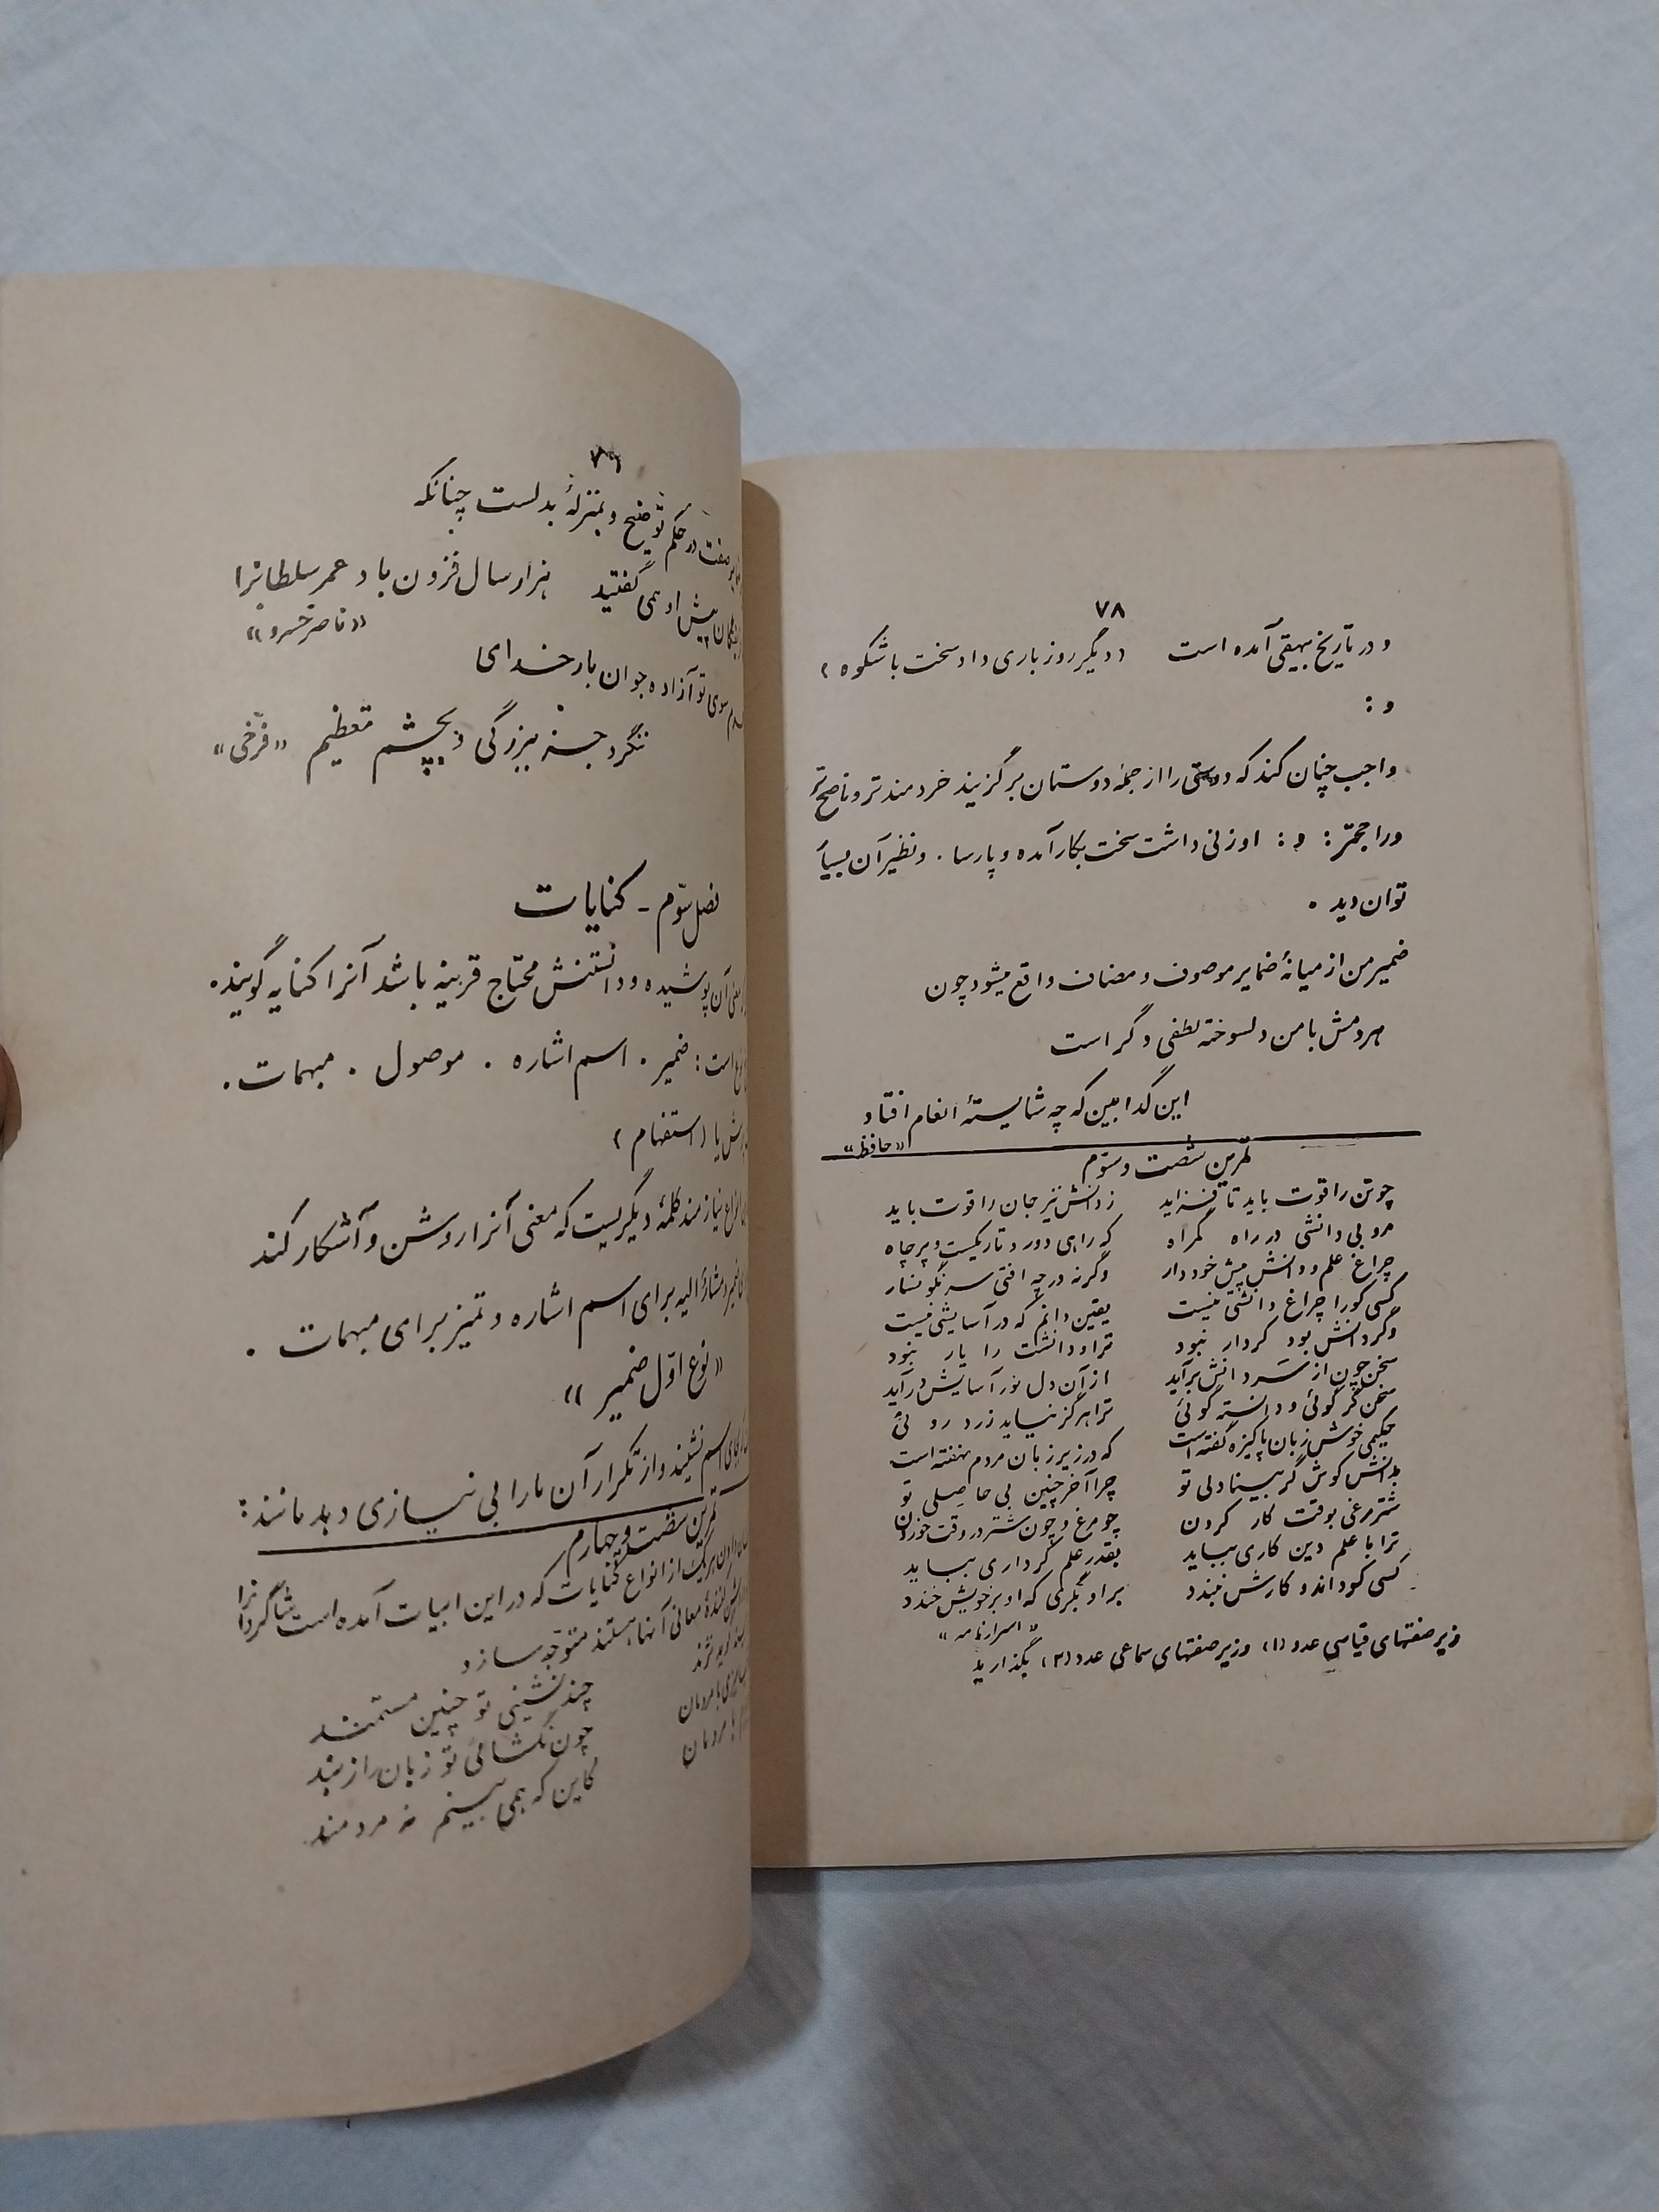 ۷۸
و در تاریخ بیهقی آمده است (دیگر روز باری داد سخت با شکوه)
و :
واجب چنان کند که دوستی را از جمله دوستان برگزیند خردمندتر و ناصح‌تر
و راجحتر: و: او زنی داشت سخت بکار آمده و پارسا . و نظیر آن بسیا
توان دید .
ضمیر من از میانهٔ ضمایر موصوف و مضاف واقع میشود چون
هر دمش با من دلسوخته لطفی دگر است
این گدا بین که چه شایستهٔ انعام افتاد
«حافظ»
تمرین شصت و سوّم
چو تن را قوت باید تا فزاید ز دانش نیز جان را قوت باید
مرو بی دانشی در راه گمراه که راهی دور و تاریکیست و پر چاه
چراغ علم و دانش پیش خود دار وگرنه در چه افتی سرنگونسار
کسی کو را چراغ دانشی نیست یقین دانم که در آسایشی نیست
وگر دانش بود کردار نبود ترا و دانشت را یار نبود
سخن چون از سر دانش برآید از آن دل نور آسایش درآید
سخن گر گوئی و دانسته گوئی ترا هرگز نیاید زرد روئی
حکیمی خوش زبان پاکیزه گفته است که در زیر زبان مردم نهفته است
بدانش کوش گر بینا دلی تو چرا آخر چنین بی حاصلی تو
شترمرغی بوقت کار کردن چو مرغ و چون شتر در وقت خوردن
ترا با علم دین کاری بباید بقدر علم کرداری بباید
کسی کو داند و کارش نبندد بر او بگری که او بر خویش خندد
«اسرارنامه»
زیر صفتهای قیاسی عدد (۱) و زیر صفتهای سماعی عدد (۲) بگذارید
۷۹
صفت در حکم توضیح و بمنزلهٔ بدلست چنانکه
پیش او همی گفتید هزار سال فزون باد عمر سلطانرا
«ناصر خسرو»
سوی تو آزاده جوان بار خدای
ننگرد جز ببزرگی و بچشم تعظیم «فرّخی»
فصل سوّم - کنایات
معنی آن پوشیده و دانستنش محتاج قرینه باشد آنرا کنایه گویند.
است: ضمیر . اسم اشاره . موصول . مبهمات .
یا (استفهام)
انواع نیازمند کلمهٔ دیگریست که معنی آنرا روشن و آشکار کند
ضمیر و مشارٌ الیه برای اسم اشاره و تمیز برای مبهمات .
«نوع اوّل ضمیر»
بجای اسم نشیند و از تکرار آن ما را بی نیازی دهد مانند :
تمرین شصت و چهارم
هر یک از انواع کنایات که در این ابیات آمده است شاگردانرا
کنندهٔ معانی آنها هستند متوجّه سازد
چند نشینی تو چنین مستمند
با مردمان چون نگشائی تو زبان را ز بند
با مردمان کاین که همی بینم نه مردمند